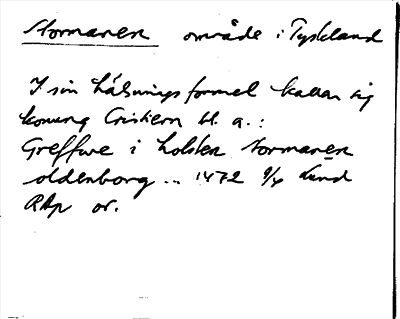 Stormaren område i Tyskland
I sin hälsningsformel kallar sig
konung Cristiern bl. a.:
Greffwe i holsten stormaren
oldenborg .. 1472 9/4 Lund
RAp or.